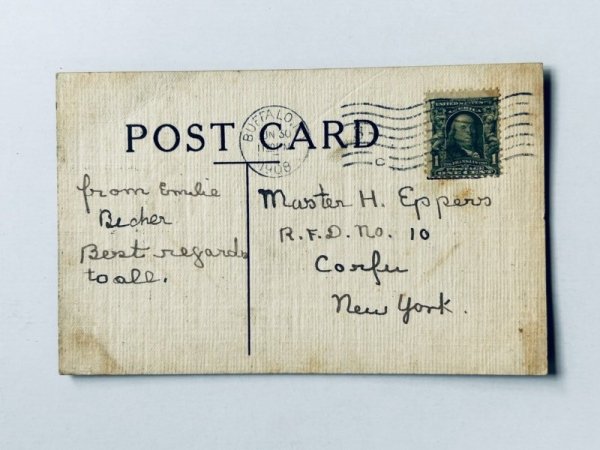 POST CARD
BUFFALO, N.Y.
JUN 30
1908
C
UNITED STATES OF AMERICA
1 1
FRANKLIN
from Emilie
Becher
Best regards
to all.
Master H. Eppers
R.F.D. No. 10
Corfu
New York.